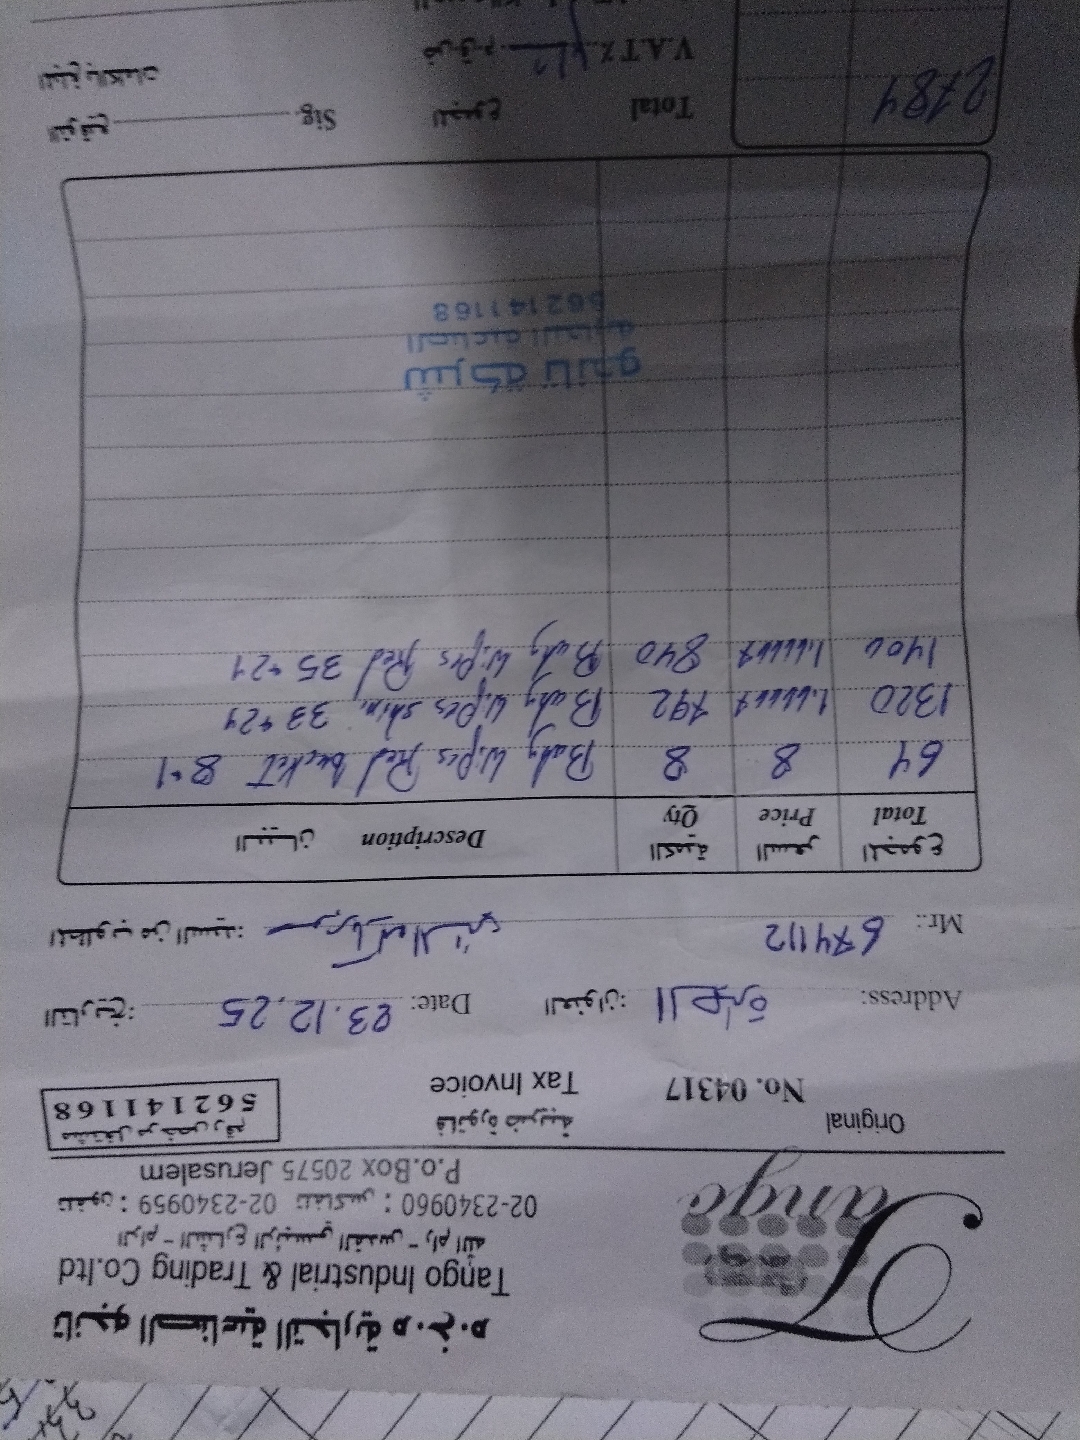 تانجو الصناعية التجارية م.خ.م
Tango
Tango Industrial & Trading Co.ltd
الرام - الشارع الرئيسي القدس - رام الله
تلفون : 02-2340959 تلفاكس : 02-2340960
P.o.Box 20575 Jerusalem
Original
فاتورة ضريبية
مشتغل مرخص رقم
562141168
No. 04317 Tax Invoice
Address: العنوان: Date: 23.12.25 التاريخ:
Mr.: 674112 المطلوب من السيد:
المجموع السعر الكمية البيان
Total Price Qty Description
64 8 8 Baby Wipes Red bucket 8*1
1320 1.66667 792 Baby Wipes 33*24
1400 1.66667 840 Baby Wipes Red 35*24
شركة تانجو
الصناعية التجارية
562141168
2784 Total المجموع Sig. التوقيع
V.A.T% ض.ق.م المبلغ بالكلمات